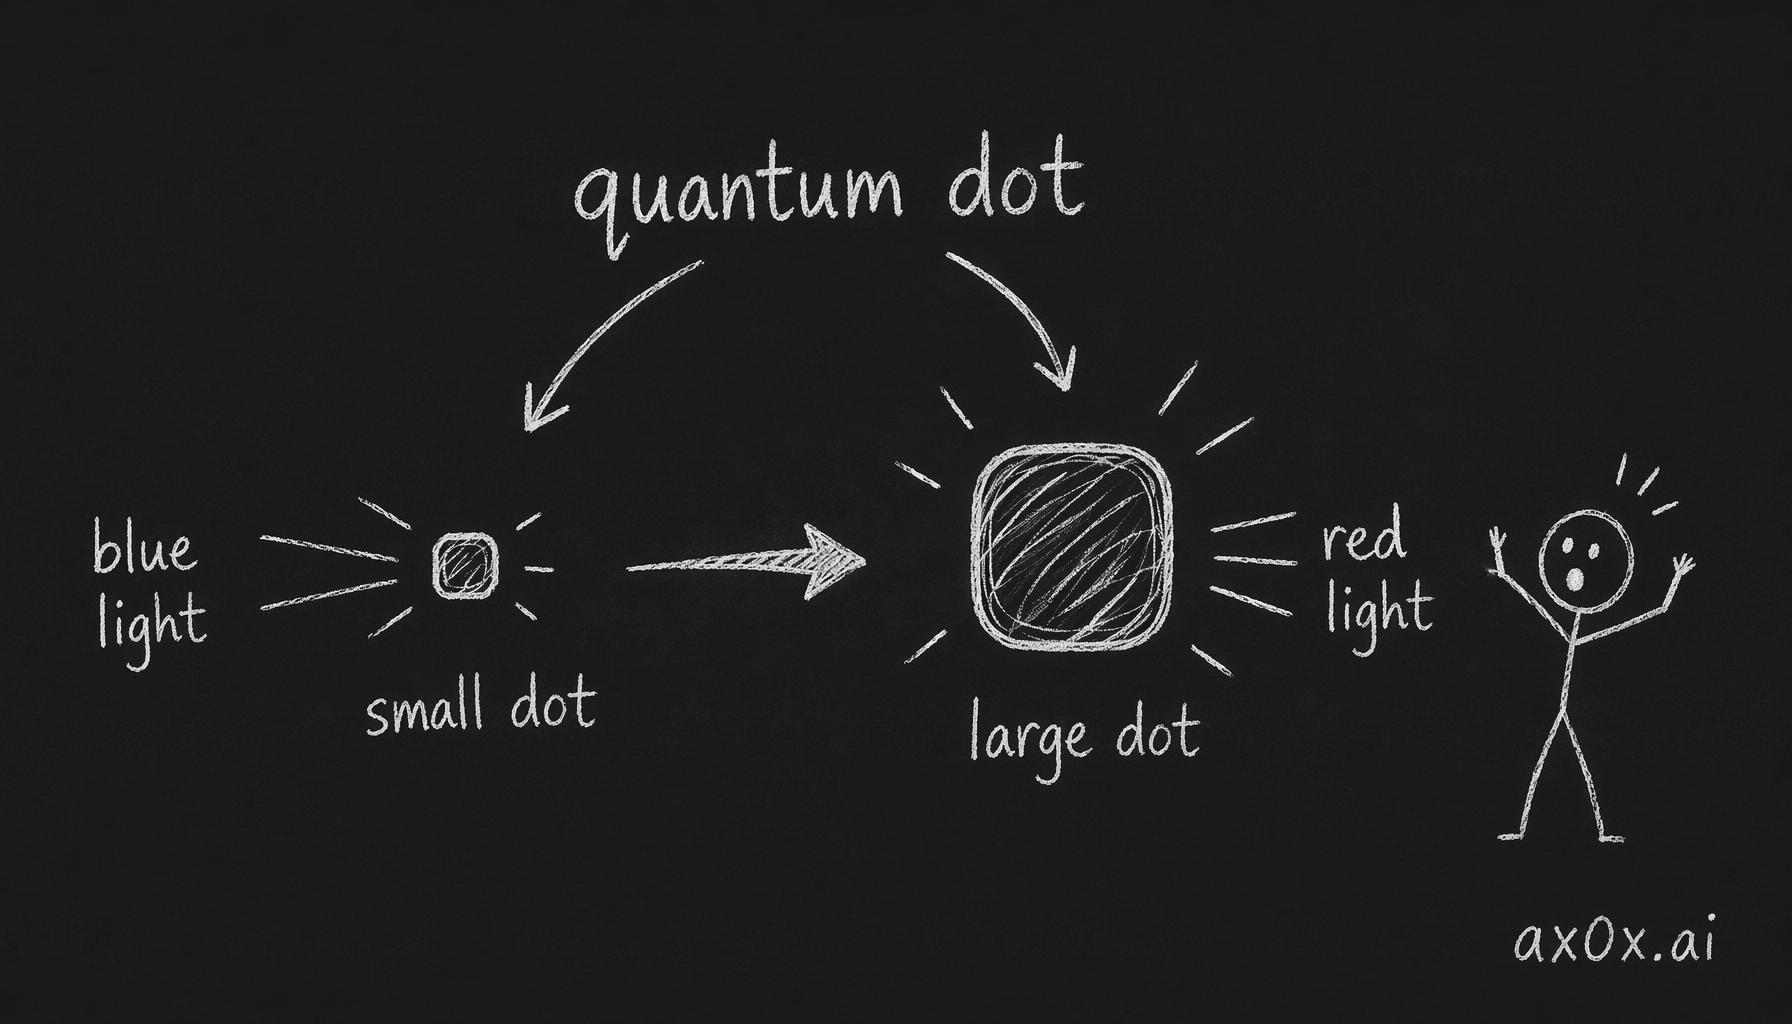 quantum dot
blue
light
small dot
large dot
red
light
ax0x.ai